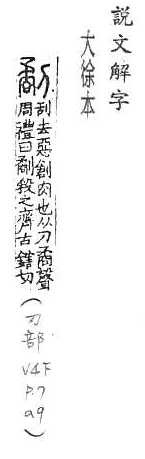 說文解字
大徐本
劀
刮去惡創肉也从刀矞聲
周禮曰劀殺之齊古鎋切
(刀部
V4下
P.7
a9)